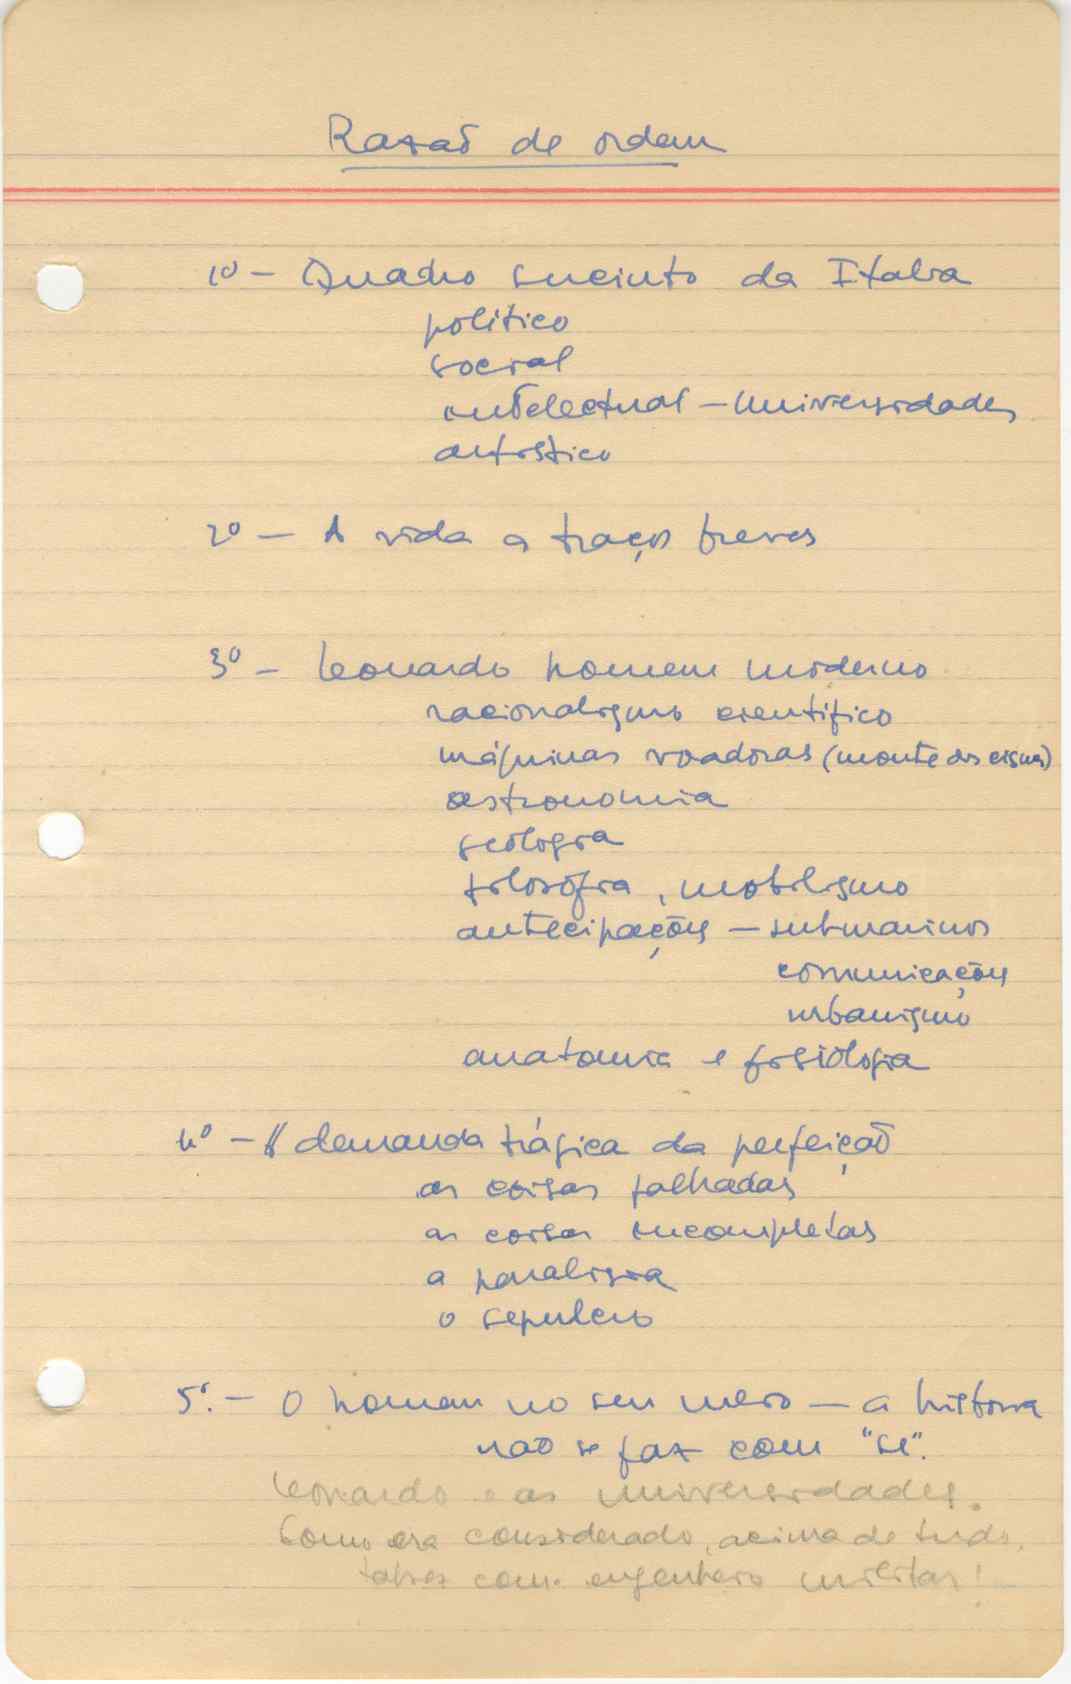 Razão de ordem
1º - Quadro sucinto da Italia
político
social
intelectual - Universidades
artístico
2º - A vida a traços breves
3º - Leonardo homem moderno
racionalismo científico
máquinas voadoras (monte dos cisnes)
astronomia
geologia
filosofia, mobilismo
antecipações - submarinos
comunicações
urbanismo
anatomia e fisiologia
4º - A demanda trágica da perfeição
as coisas falhadas
as coisas incompletas
a paralisia
o sepulcro
5º. - O homem no seu meio - a historia
não se faz com "se".
Leonardo e as universidades.
Como era considerado, acima de tudo,
talvez como engenheiro militar!